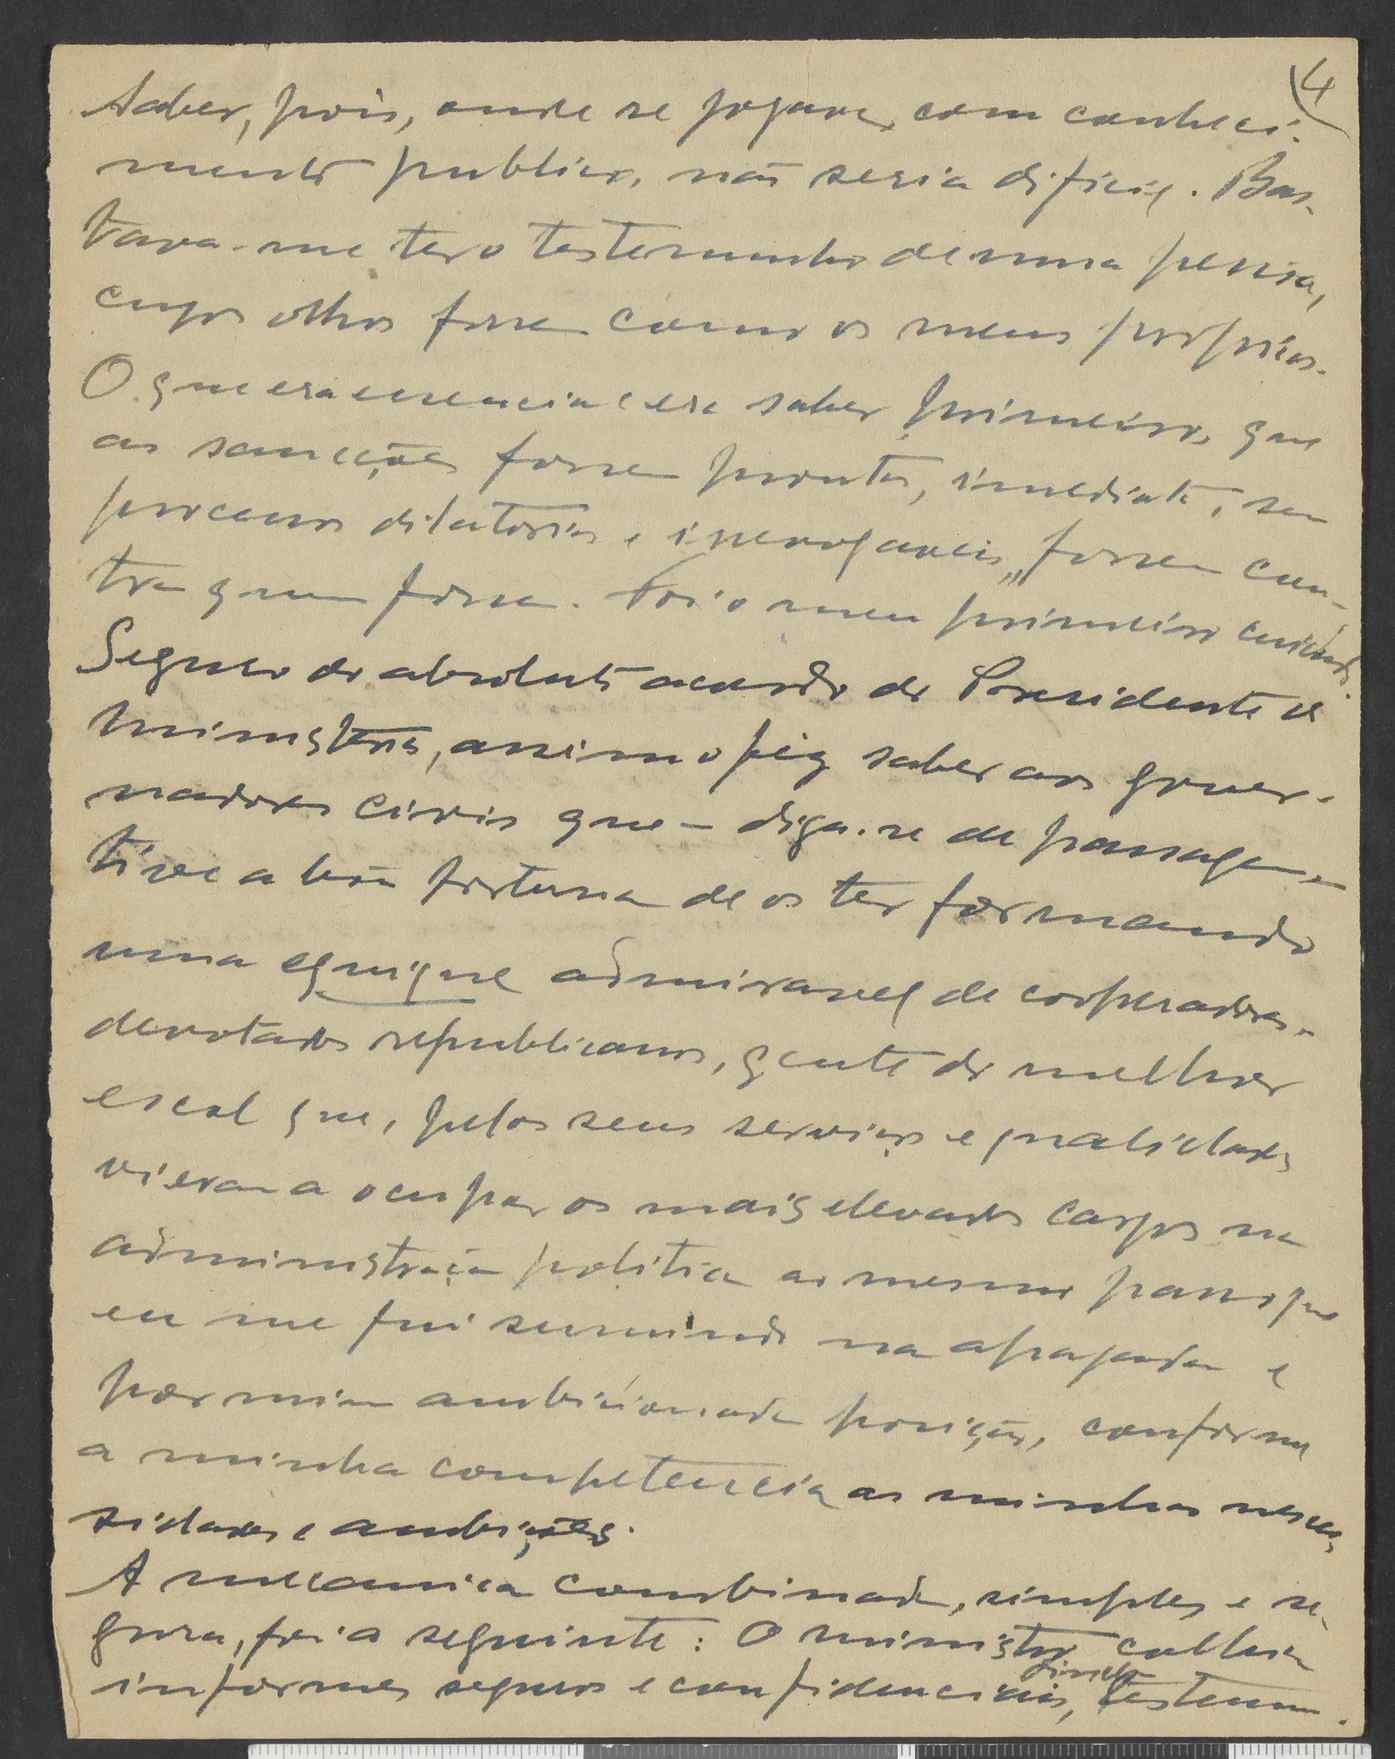 4
Saber, pois, onde se jogava, com conheci-
mento publico, não seria dificil. Bas-
tava-me ter o testemunho de uma pessoa,
cujos olhos fossem como os meus proprios.
O que era essencial era saber primeiro, que
as sancções fossem prontas, imediatas, sem
processos dilatorios e irrevogaveis, fossem con-
tra quem fosse. Foi o meu primeiro cuidado.
Seguro do absoluto acordo do Presidente do
Ministerio, assim o fiz saber aos gover-
nadores civis que – diga-se de passagem –
tive a boa fortuna de os ter formando
uma equipe admiravel de cooperadores,
devotados republicanos, gente do melhor
escol que, pelos seus serviços e qualidades
vieram a ocupar os mais elevados cargos na
administração politica ao mesmo passo que
eu me fui sumindo na apagada e
por mim ambicionada posição, conforme
a minha competencia as minhas neces-
sidades e ambições.
A mecanica combinada, simples e se-
gura, foi a seguinte: O ministro colhia
informes seguros e confidenciais, directos
testemu-